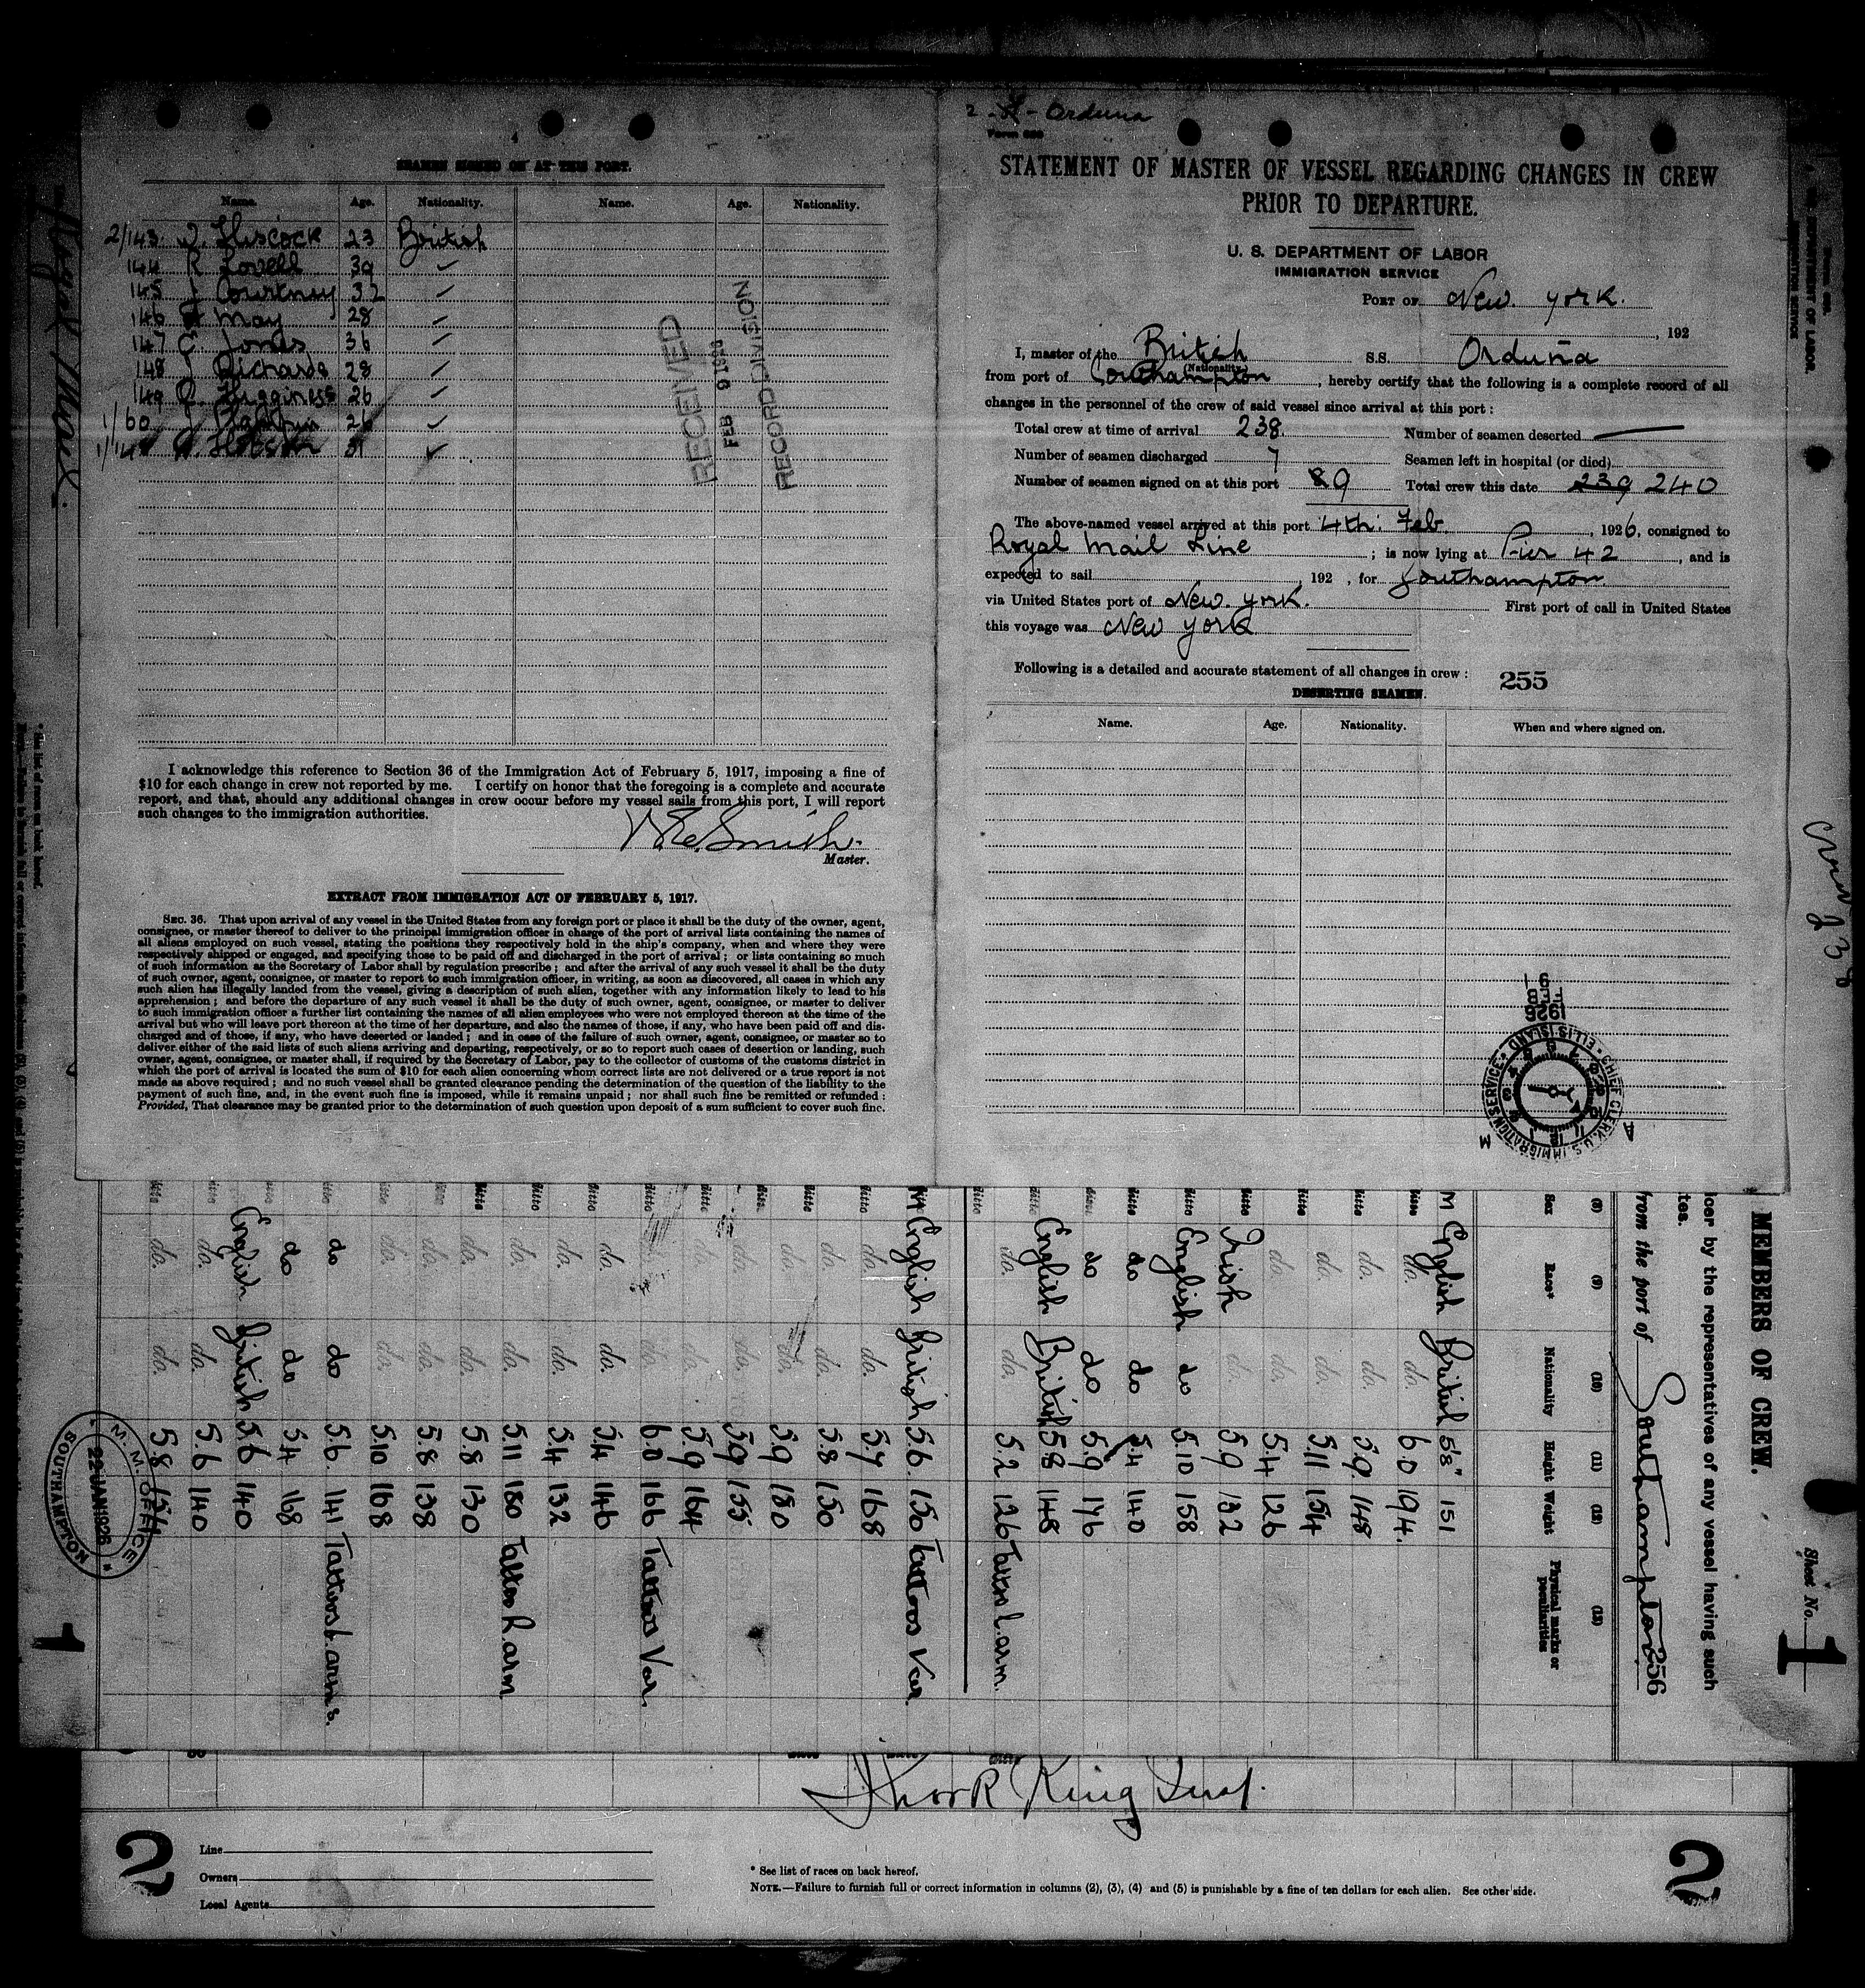 SEAMEN SIGNED ON AT THIS PORT.
Name. Age. Nationality. Name. Age. Nationality.
2/143. Hiscock 23 British
144 R Lovell 39 ✓
145 J Courtney 32 ✓
146 May 28 ✓
147 E. Jones 36 ✓
148 J Richards 28 ✓
149 Huggines 26 ✓
1/60 J 26 ✓
31 ✓
RECEIVED
FEB 9 1926
RECORD DIVISION
I acknowledge this reference to Section 36 of the Immigration Act of February 5, 1917, imposing a fine of
$10 for each change in crew not reported by me. I certify on honor that the foregoing is a complete and accurate
report, and that, should any additional changes in crew occur before my vessel sails from this port, I will report
such changes to the immigration authorities.
Smith.
Master.
EXTRACT FROM IMMIGRATION ACT OF FEBRUARY 5, 1917.
SEC. 36. That upon arrival of any vessel in the United States from any foreign port or place it shall be the duty of the owner, agent,
consignee, or master thereof to deliver to the principal immigration officer in charge of the port of arrival lists containing the names of
all aliens employed on such vessel, stating the positions they respectively hold in the ship's company, when and where they were
respectively shipped or engaged, and specifying those to be paid off and discharged in the port of arrival; or lists containing so much
of such information as the Secretary of Labor shall by regulation prescribe; and after the arrival of any such vessel it shall be the duty
of such owner, agent, consignee, or master to report to such immigration officer, in writing, as soon as discovered, all cases in which any
such alien has illegally landed from the vessel, giving a description of such alien, together with any information likely to lead to his
apprehension; and before the departure of any such vessel it shall be the duty of such owner, agent, consignee, or master to deliver
to such immigration officer a further list containing the names of all alien employees who were not employed thereon at the time of the
arrival but who will leave port thereon at the time of her departure, and also the names of those, if any, who have been paid off and dis-
charged and of those, if any, who have deserted or landed; and in case of the failure of such owner, agent, consignee, or master so to
deliver either of the said lists of such aliens arriving and departing, respectively, or so to report such cases of desertion or landing, such
owner, agent, consignee, or master shall, if required by the Secretary of Labor, pay to the collector of customs of the customs district in
which the port of arrival is located the sum of $10 for each alien concerning whom correct lists are not delivered or a true report is not
made as above required; and no such vessel shall be granted clearance pending the determination of the question of the liability to the
payment of such fine, and, in the event such fine is imposed, while it remains unpaid; nor shall such fine be remitted or refunded:
Provided, That clearance may be granted prior to the determination of such question upon deposit of a sum sufficient to cover such fine.
Orduna
STATEMENT OF MASTER OF VESSEL REGARDING CHANGES IN CREW
PRIOR TO DEPARTURE.
U. S. DEPARTMENT OF LABOR
IMMIGRATION SERVICE
PORT OF New York.
, 192
I, master of the British S.S. Orduña
(Nationality)
from port of Southampton, hereby certify that the following is a complete record of all
changes in the personnel of the crew of said vessel since arrival at this port:
Total crew at time of arrival 238 Number of seamen deserted —
Number of seamen discharged 7 Seamen left in hospital (or died)
Number of seamen signed on at this port 8 9 Total crew this date 239 240
The above-named vessel arrived at this port 4th. Feb, 1926, consigned to
Royal Mail Line; is now lying at Pier 42, and is
expected to sail 192 , for Southampton
via United States port of New York. First port of call in United States
this voyage was New York
Following is a detailed and accurate statement of all changes in crew: 255
DESERTING SEAMEN.
Name. Age. Nationality. When and where signed on.
1926
FEB
9
CHIEF CLERK, U.S. IMMIGRATION SERVICE ELLIS ISLAND
A M
Royal Mail.
MEMBERS OF CREW.
Sheet No. 1
icer by the representatives of any vessel having such
tes.
from the port of Southampton 256
(8) (9) (10) (11) (12) (13)
Sex Race* Nationality Height Weight Physical marks or peculiarities
M English British 5'8" 151
ditto do. do. 6.0 194.
ditto do. do. 5.9. 148
ditto do. do. 5.11 154
ditto do. do. 5.4 126
ditto Irish do. 5.9 132
ditto English do 5.10 158
ditto do do 5.4 140
ditto do do 5.9 176
ditto English British 5.8 148
ditto do. do. 5.2 126 Tattoo L. arm.
M English British 5.6. 150 Tattoos Var
ditto do. do. 5.7 168
ditto do. do. 5.8 150
ditto do. do. 5.9 180
ditto do. do. 5.9 155
ditto do. do. 5.9 164
ditto do. do. 6.0 166 Tattoos Var.
ditto do. do. 5.4 146
ditto do. do. 5.4 132
ditto do. do. 5.11 180 Tattoo R. arm
ditto do. do. 5.8 130
ditto do. do. 5.8 138
ditto do. do. 5.10 168
ditto do do 5.6. 141 Tattoos L. arms.
ditto do do 5.4 168
ditto English British 5.6 140
ditto do. do. 5.6 140
ditto do. do. 5.8 154
M. M. OFFICE
22 JAN 1926
SOUTHAMPTON
1
King
2
Line
Owners
Local Agents
* See list of races on back hereof.
NOTE.—Failure to furnish full or correct information in columns (2), (3), (4) and (5) is punishable by a fine of ten dollars for each alien. See other side.
2